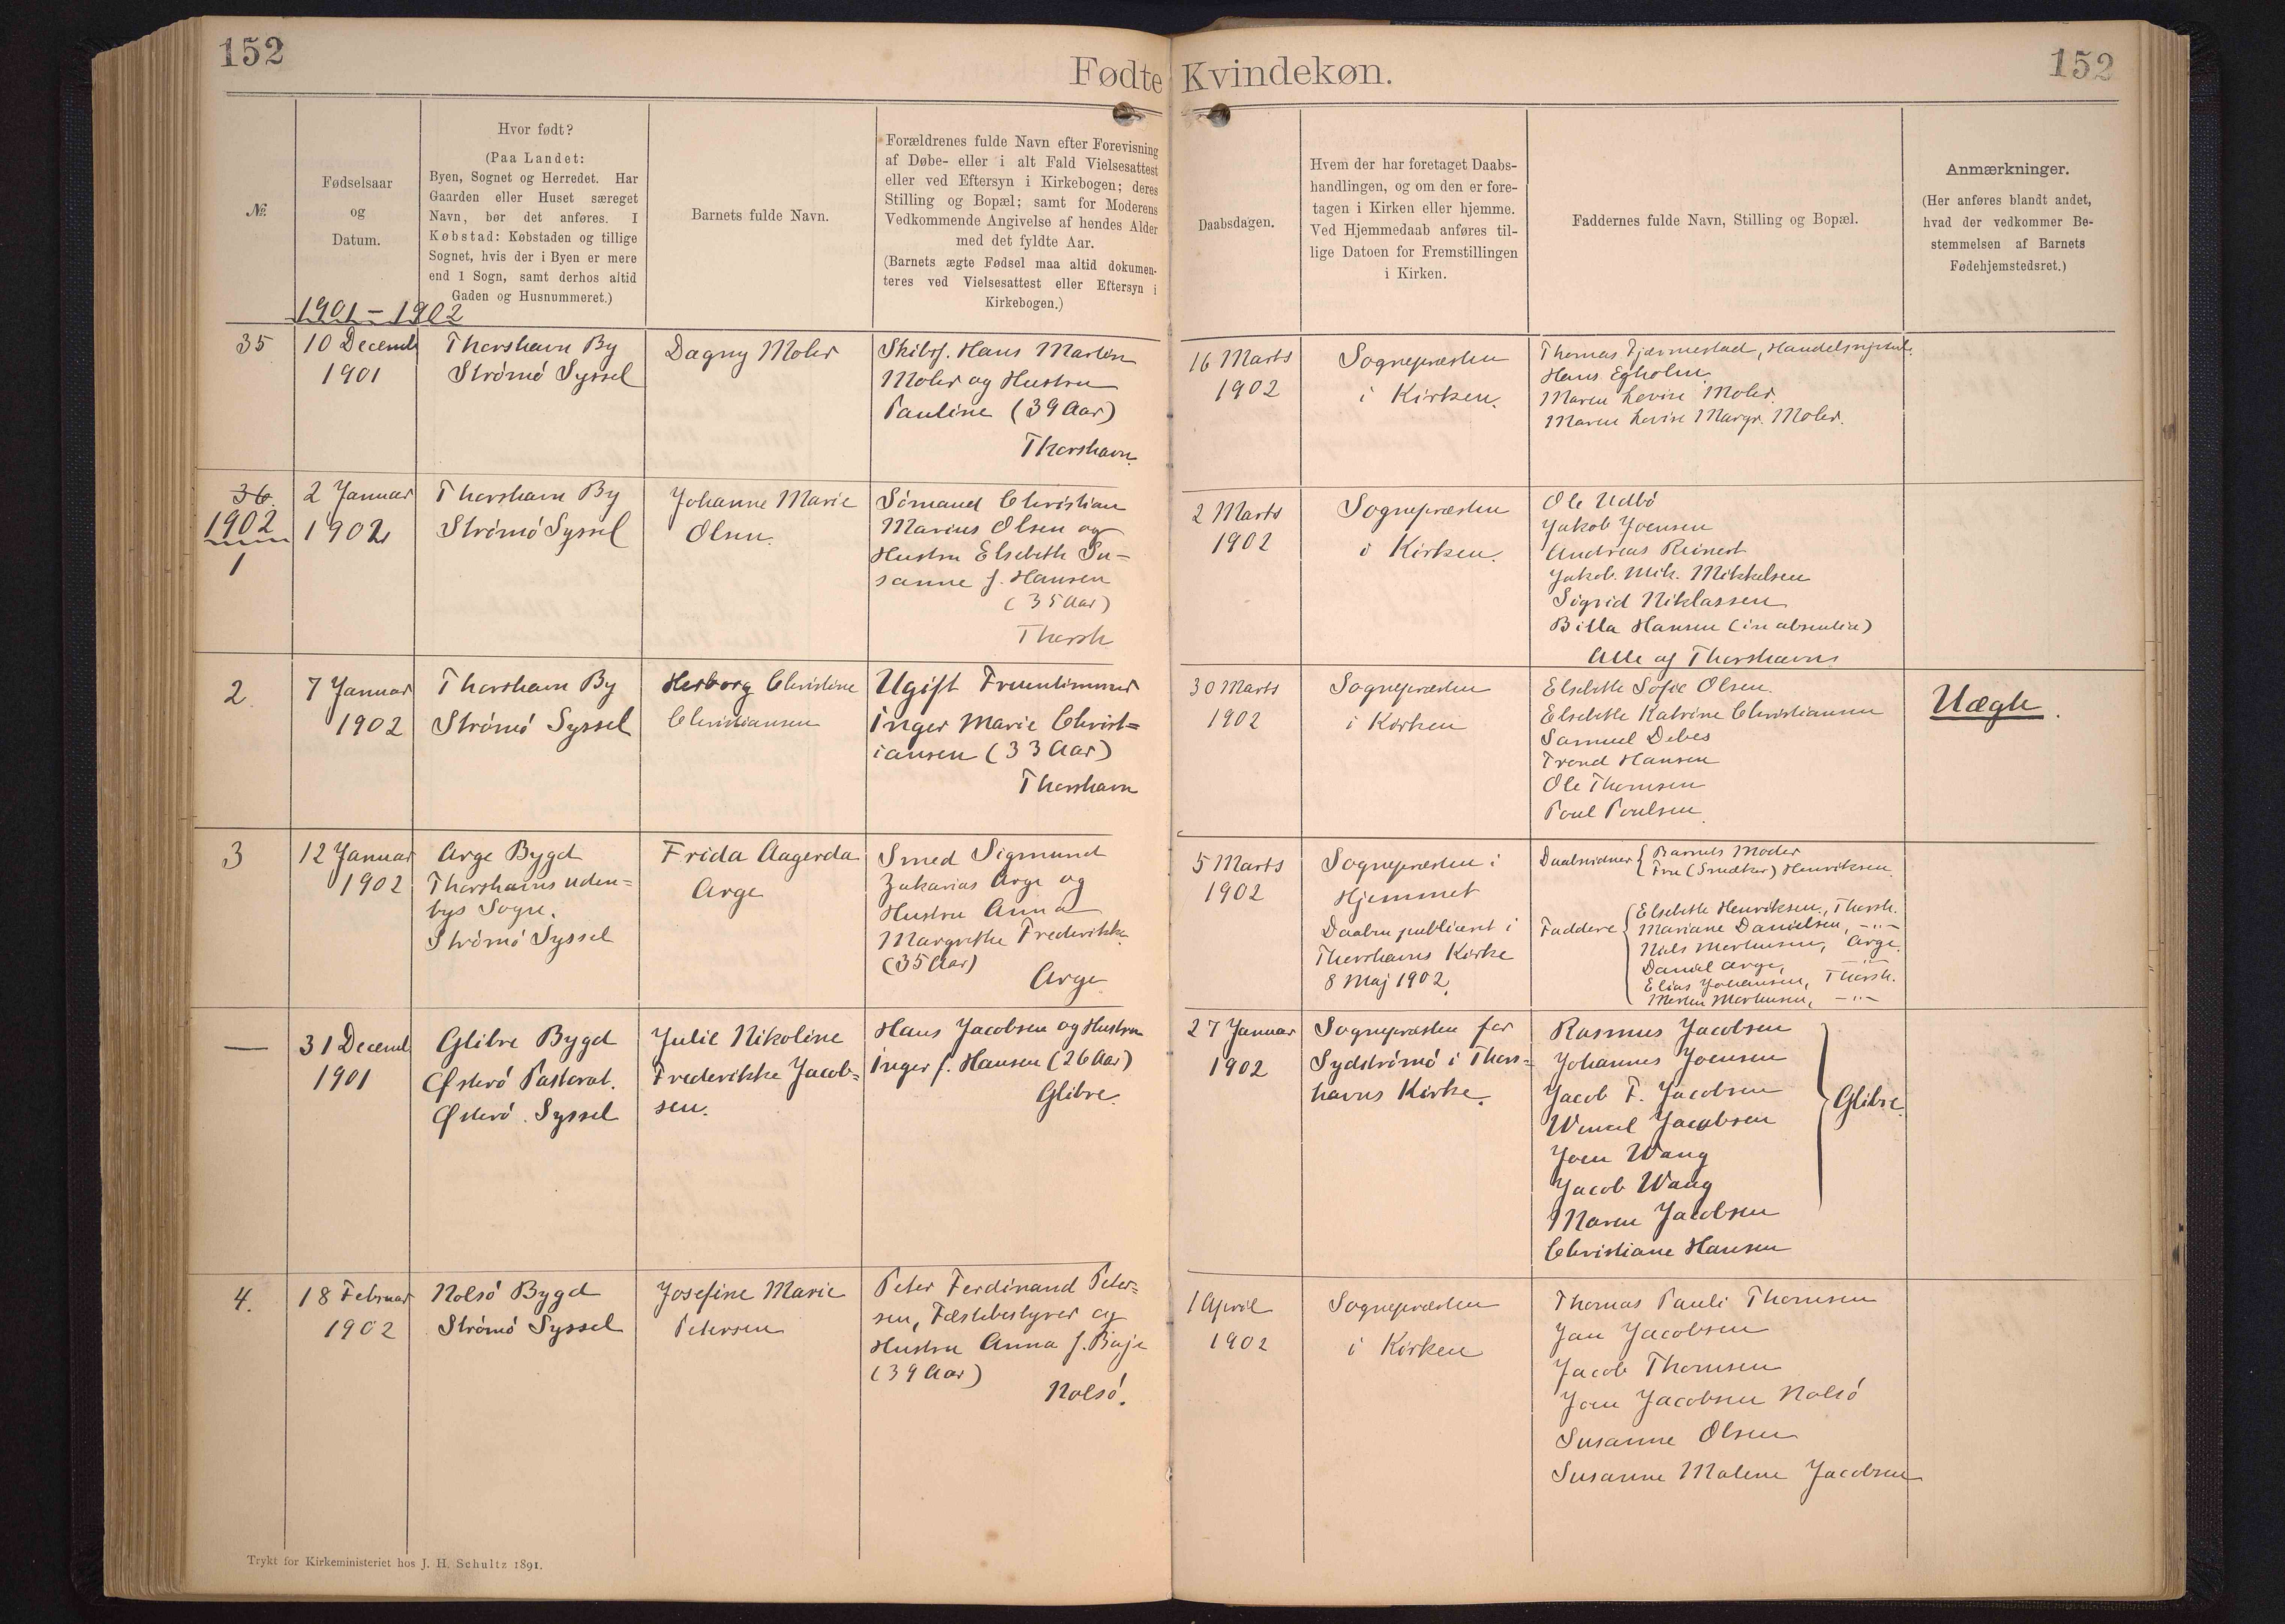 152
152
Fødte Kvindekøn.
№.
Fødselsaar
og
Datum.
Hvor født?
(Paa Landet:
Byen, Sognet og Herredet. Har
Gaarden eller Huset særeget
Navn, bør det anføres. I
Købstad: Købstaden og tillige
Sognet, hvis der i Byen er mere
end 1 Sogn, samt derhos altid
Gaden og Husnummeret.)
Barnets fulde Navn.
Forældrenes fulde Navn efter Forevisning
af Døbe- eller i alt Fald Vielsesattest
eller ved Eftersyn i Kirkebogen; deres
Stilling og Bopæl; samt for Moderens
Vedkommende Angivelse af hendes Alder
med det fyldte Aar.
(Barnets ægte Fødsel maa altid dokumen-
teres ved Vielsesattest eller Eftersyn i
Kirkebogen.)
Daabsdagen.
Hvem der har foretaget Daabs-
handlingen, og om den er fore-
tagen i Kirken eller hjemme.
Ved Hjemmedaab anføres til-
lige Datoen for Fremstillingen
i Kirken.
Faddernes fulde Navn, Stilling og Bopæl.
Anmærkninger.
(Her anføres blandt andet,
hvad der vedkommer Be-
stemmelsen af Barnets
Fødehjemstedsret.)
1901-1902
35
10 Decemb
1901
Thorshavn By
Strömö Syssel
Dagny Mohr
Skibsf. Hans Marten
Mohr og Hustru
Pauline (39 Aar)
Thorshavn.
16 Marts
1902
Sognepræsten
i Kirken.
Thomas
Hans Egholm
Maren Lovise Mohr.
Maren Lovise Margr. Mohr.
36.
1902
1
2 Januar
1902
Thorshavn By
Strömö Syssel
Johanne Marie
Olsen.
Sömand Christian
Marius Olsen og
Hustru Elsebeth Su-
sanne f. Hansen
(35 Aar)
Thorsh
2 Marts
1902
Sognepræsten
i Kirken.
Ole Udbö
Jakob Joensen
Andreas Reinert
Jakob. Mik. Mikkelsen
Sigrid Niklassen
Billa Hansen (in absentia)
Alle af Thorshavn
2.
7 Januar
1902
Thorshavn By
Strömö Syssel
Herborg Christine
Christiansen
Ugift Fruentimmer
Inger Marie Christ=
iansen (33 Aar)
Thorshavn
30 Marts
1902
Sognepræsten
i Kirken
Elsebeth Sofie Olsen.
Elsebeth Katrine Christiansen
Samuel Debes
Trond Hansen
Ole Thomsen
Poul Poulsen.
Uægte.
3
12 Januar
1902
Arge Bygd
Thorshavns uden=
bys Sogn.
Strömö Syssel
Frida Aagerda
Arge
Smed Sigmund
Zakarias Arge og
Hustru Anna
Margrethe Frederikke
(35 Aar)
Arge
5 Marts
1902
Sognepræsten i
Hjemmet
Daaben publiceret i
Thorshavns Kirke
8 Maj 1902.
Daabsvidner { Barnets Moder
Fru (Snedker) Henriksen.
Faddere { Elsebeth Henriksen, Thorsh.
Mariane Danielsen, -"-
Niels Mortensen, Arge.
Daniel Arge, -"-
Elias Johansen, Thorsh.
Morten Mortensen, -"-
—
31 Decemb
1901
Glibre Bygd
Østerö Pastorat.
Østerö. Syssel
Julie Nikoline
Frederikke Jacob=
sen.
Hans Jacobsen og Hustru
Inger f. Hansen (26 Aar)
Glibre.
27 Januar
1902
Sognepræsten for
Sydströmö i Thors=
havns Kirke.
Rasmus Jacobsen
Johannes Joensen
Jacob F. Jacobsen
Wencel Jacobsen
Joen Wang
Jacob Wang
Maren Jacobsen
Christiane Hansen
Glibre.
4.
18 Februar
1902
Nolsö Bygd
Strömö Syssel
Josefine Marie
Petersen
Peter Ferdinand Peter=
sen, Fæstebestyrer og
Hustru Anna f.
(39 Aar)
Nolsö.
1 April
1902
Sognepræsten
i Kirken
Thomas Pauli Thomsen
Jan Jacobsen
Jacob Thomsen
Joen Jacobsen Nolsö
Susanne Olsen
Susanne Malene Jacobsen
Trykt for Kirkeministeriet hos J. H. Schultz 1891.